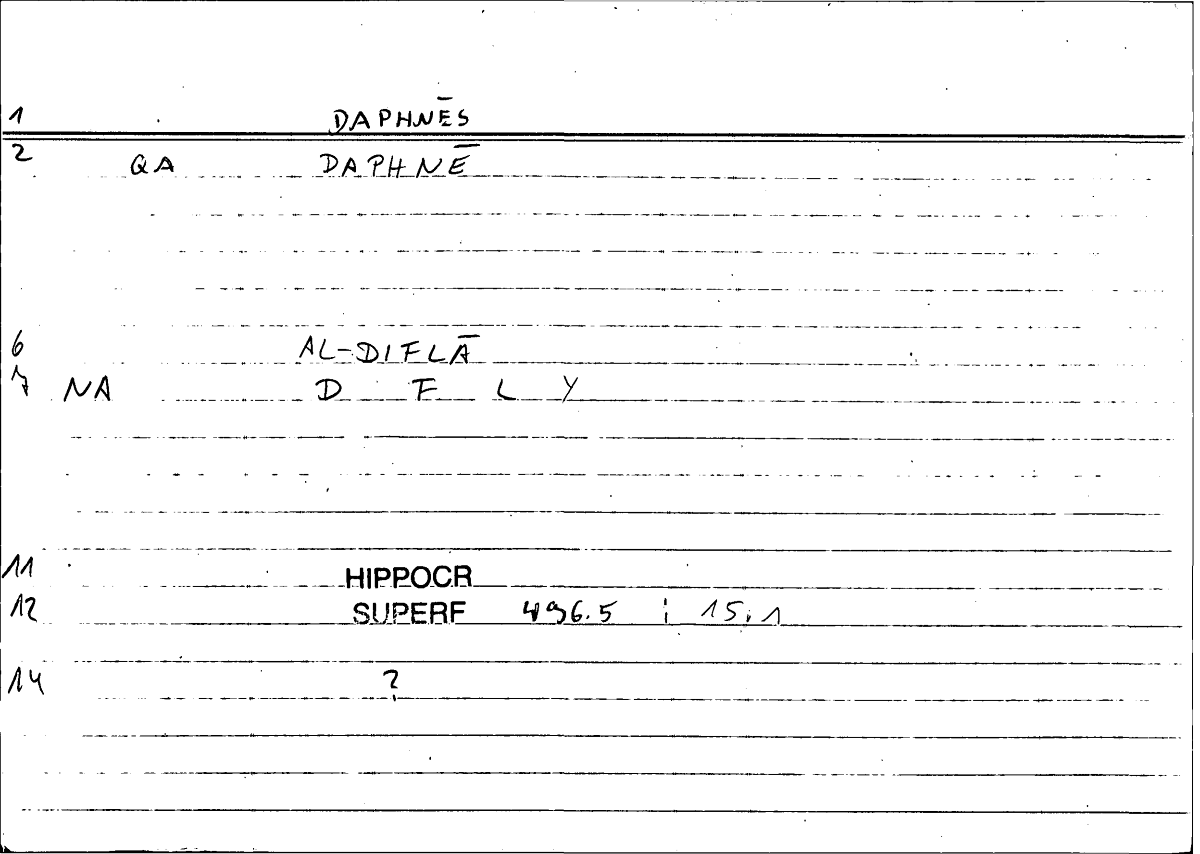 1 DAPHNĒS
2 QA DAPHNĒ
6 AL-DIFLĀ
7 NA D F L Y
11 HIPPOCR
12 SUPERF 496.5 ; 15,1
14 ?